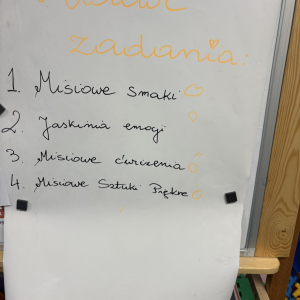 zadania:
1. Misiowe smaki
2. Jaskinia emocji
3. Misiowe ćwiczenia
4. Misiowe Sztuki Piękne